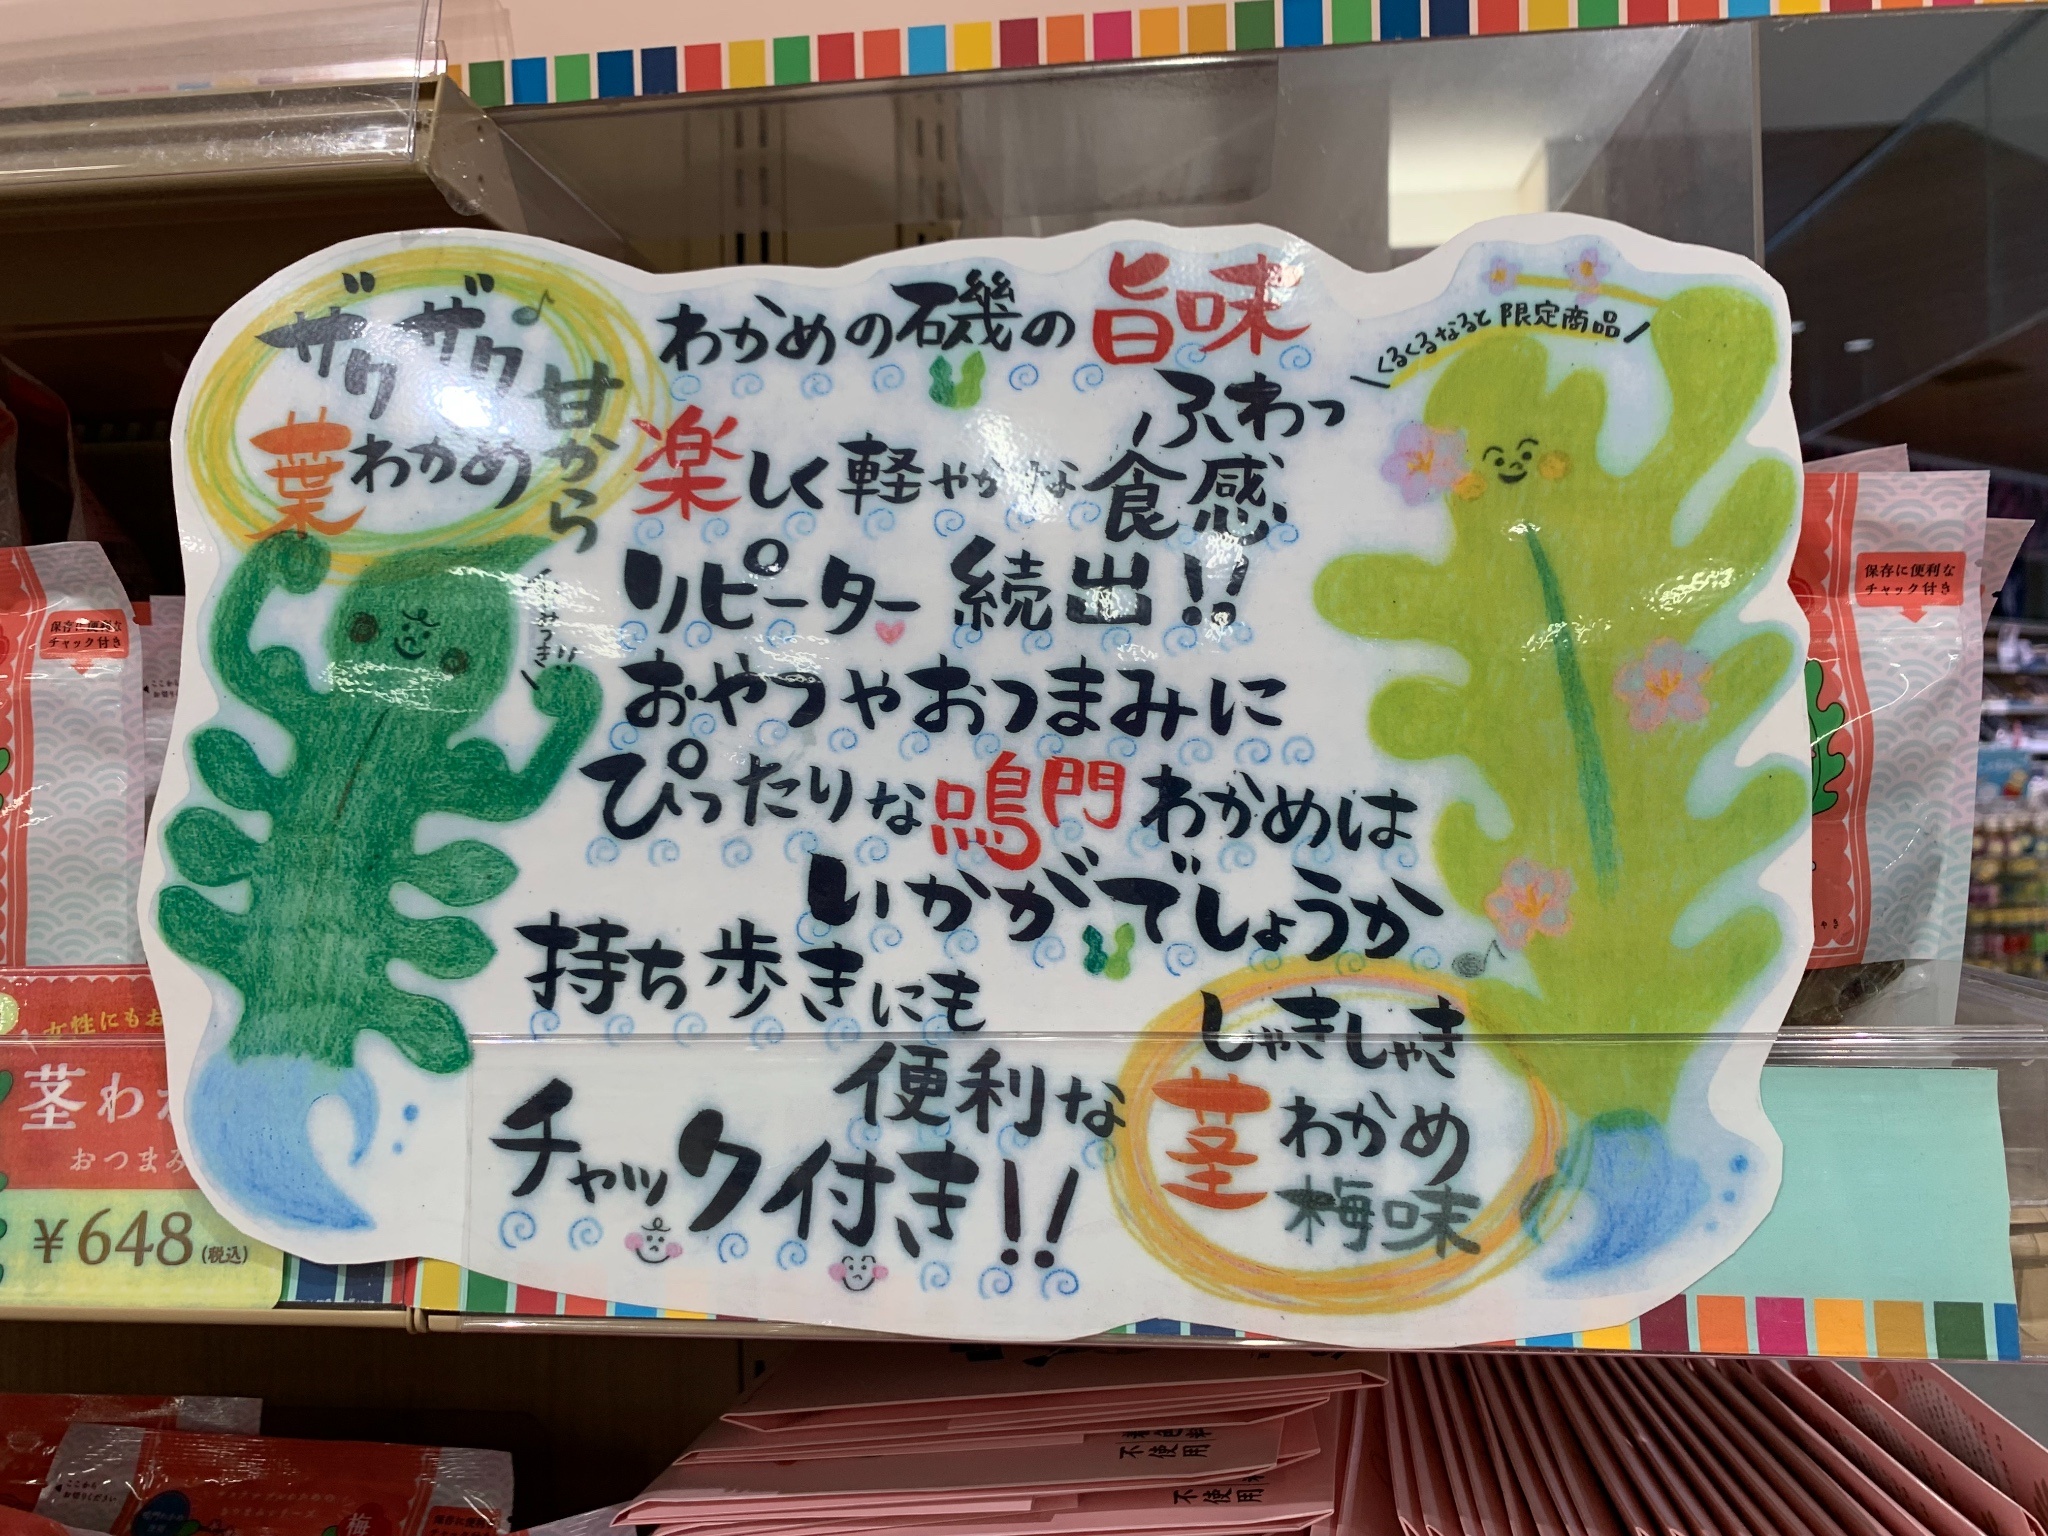 ザクザク
葉わかめ
甘から
わかめの磯の旨味
ふわっ
楽しく軽やかな食感
リピーター続出!!
おやつやおつまみに
ぴったりな鳴門わかめは
いかがでしょうか
持ち歩きにも
便利な
チャック付き!!
くるくるなると限定商品
しゃきしゃき
茎わかめ
梅味
保存に便利な
チャック付き
保存に便利な
チャック付き
女性にもお
茎わ
おつまみ
¥648(税込)
不使用
不使用
梅